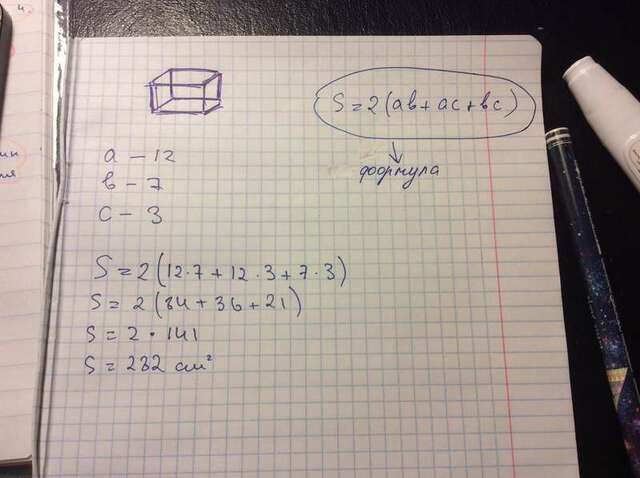 S = 2 (ab + ac + bc)
формула
a – 12
b – 7
c – 3
S = 2 (12 · 7 + 12 · 3 + 7 · 3)
S = 2 (84 + 36 + 21)
S = 2 · 141
S = 282 см²